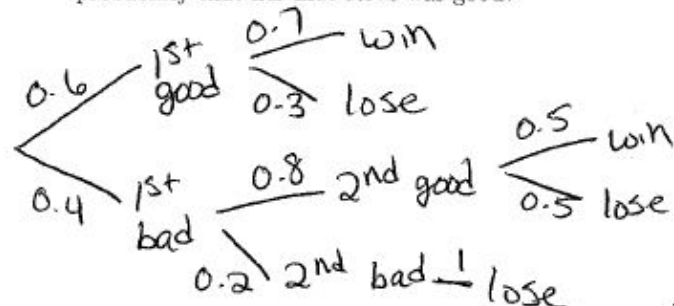 0.6 1st good 0.7 win
0.3 lose
0.4 1st bad 0.8 2nd good 0.5 win
0.5 lose
0.2 2nd bad 1 lose